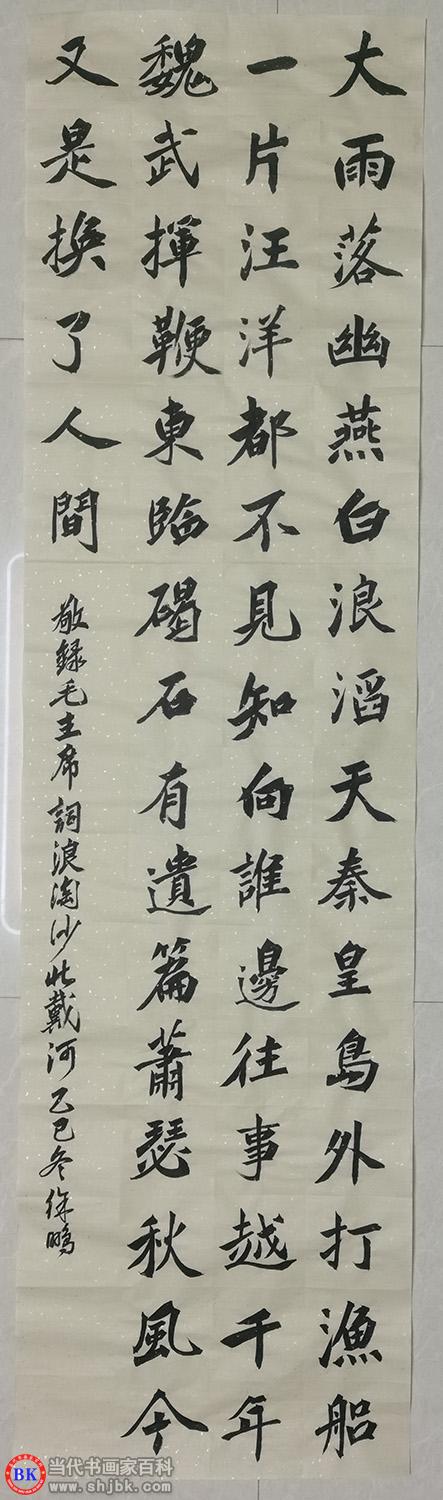 大雨落幽燕白浪滔天秦皇島外打漁船
一片汪洋都不見知向誰邊往事越千年
魏武揮鞭東臨碣石有遺篇蕭瑟秋風今
又是換了人間
敬録毛主席詞浪淘沙北戴河乙巳冬徐鵬
BK
当代书画家百科
www.shjbk.com